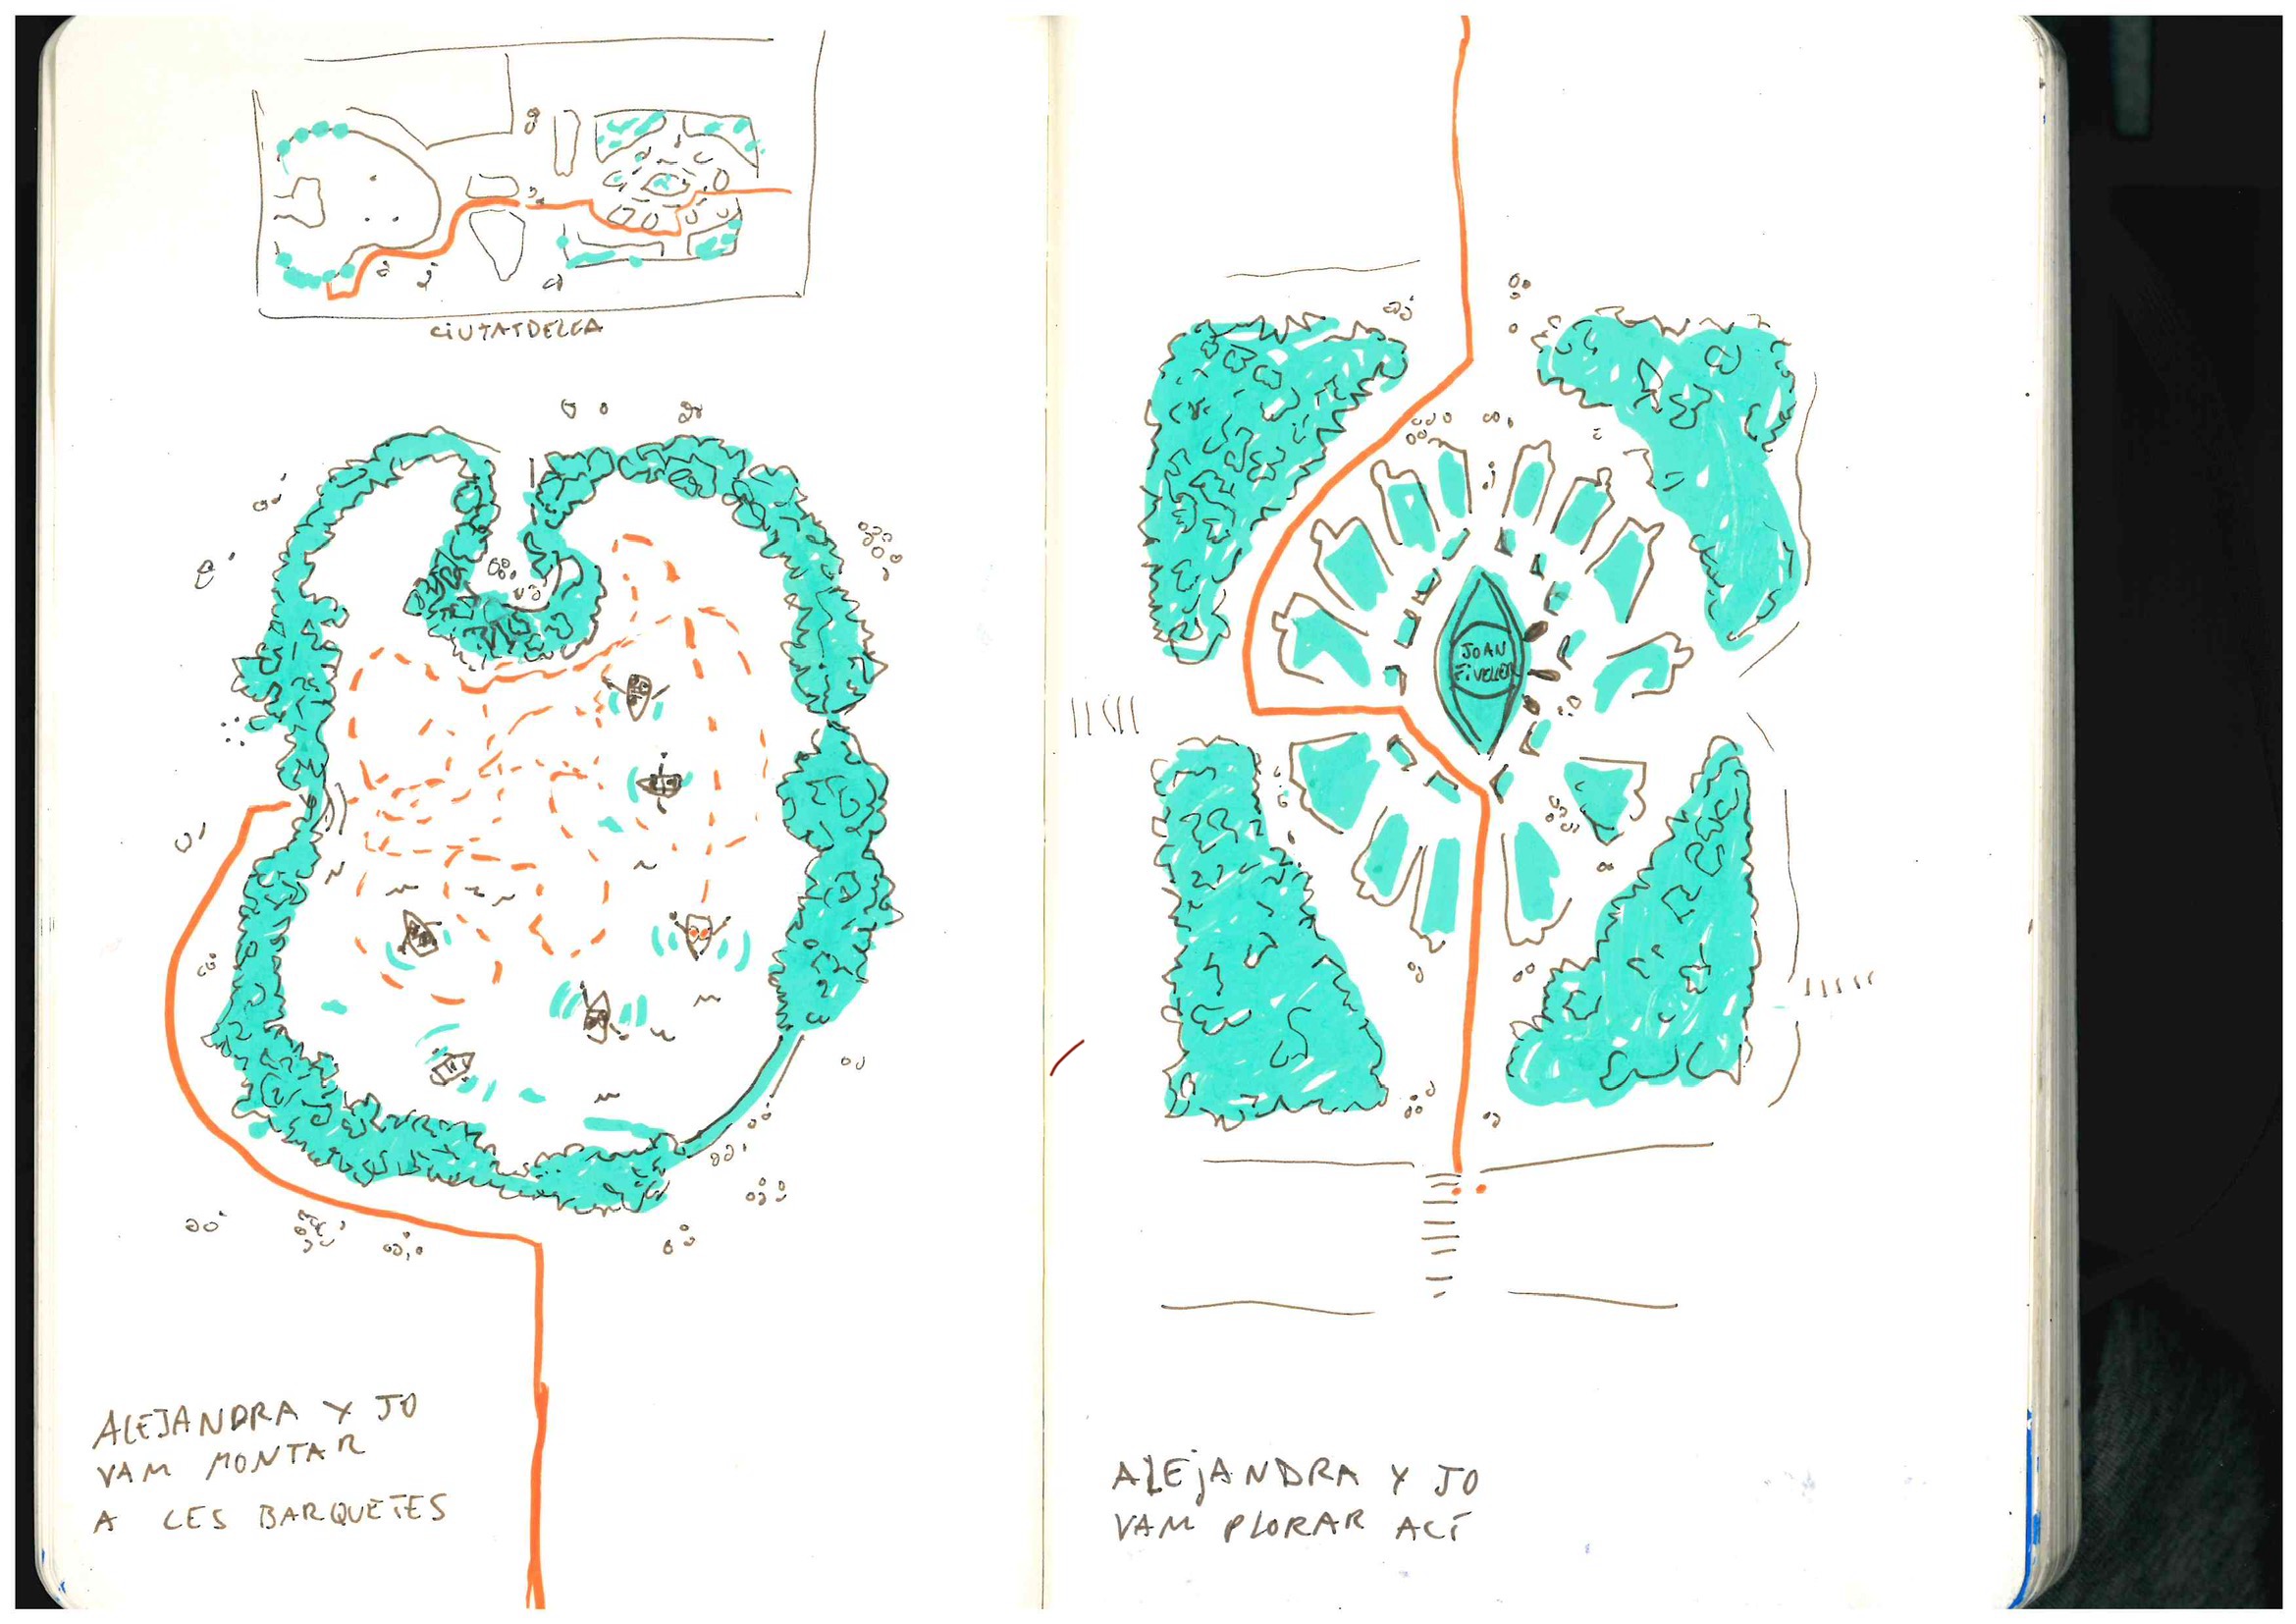 CIUTATDELLA
ALEJANDRA Y JO
VAM MONTAR
A LES BARQUETES
JOAN
FIVELLER
ALEJANDRA Y JO
VAM PLORAR ACÍ